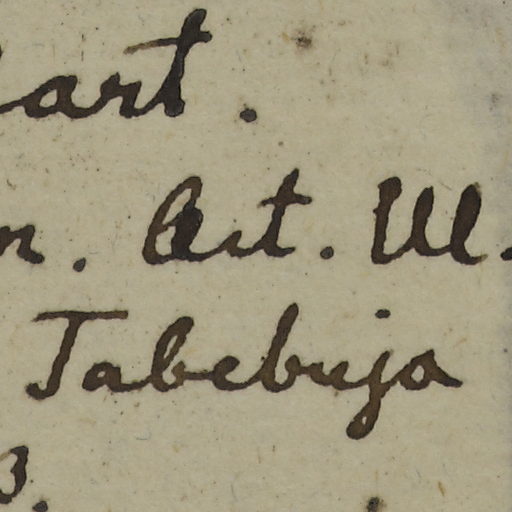 art.
n. Art. Ul.
Tabebuja
3.